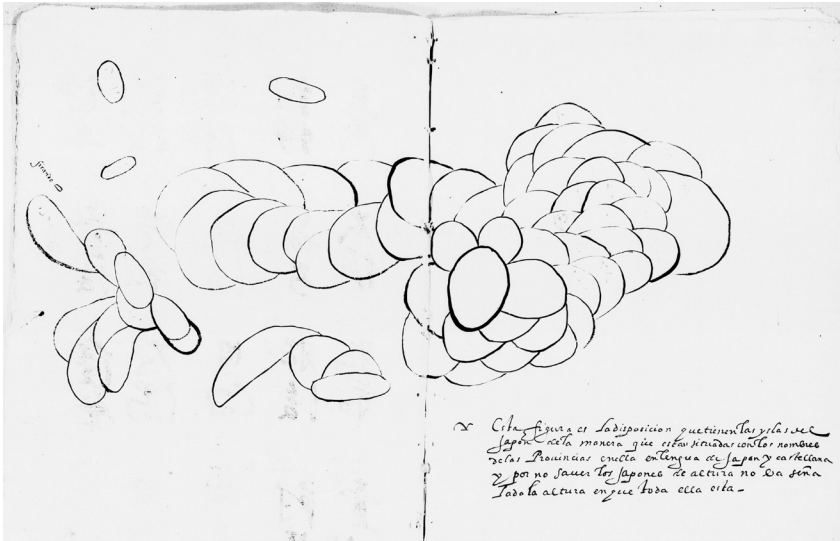 firando
Esta figura es la disposicion que tienen las yslas del
Japon de la manera que estan situadas con los nombres
de las Provincias en ella en lengua de Japon y castellana
y por no saver los Japones de altura no va seña
lado la altura en que toda ella esta